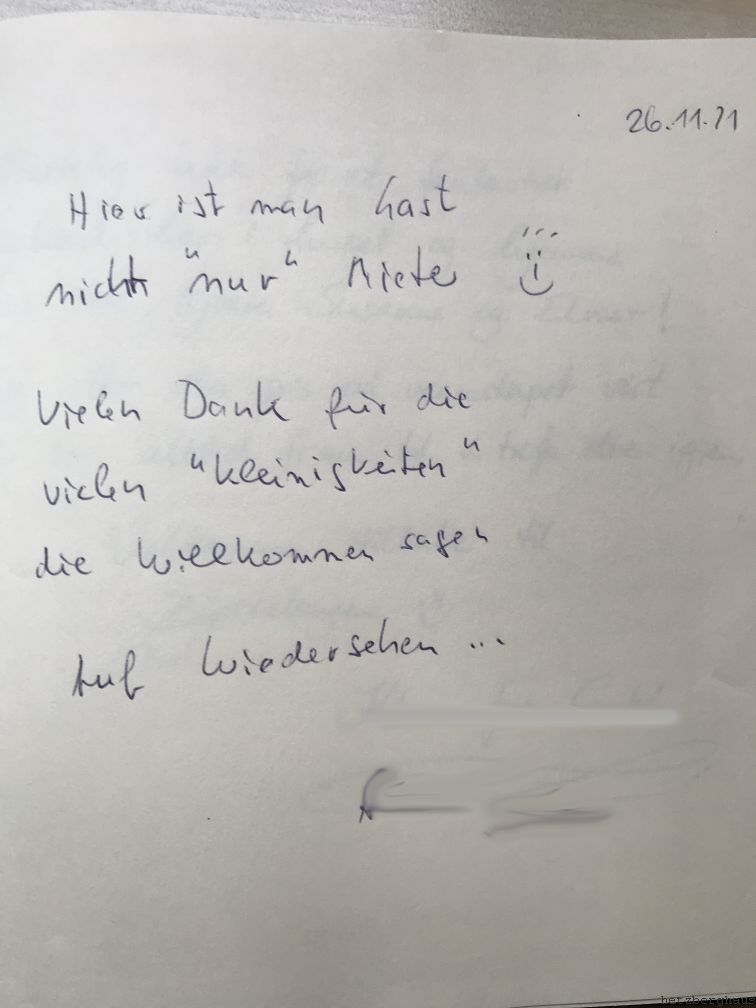 26.11.21
Hier ist man Gast
nicht "nur" Mieter
Vielen Dank für die
vielen "Kleinigkeiten"
die Willkommen sagen
Auf Wiedersehen ...
herzberghaus